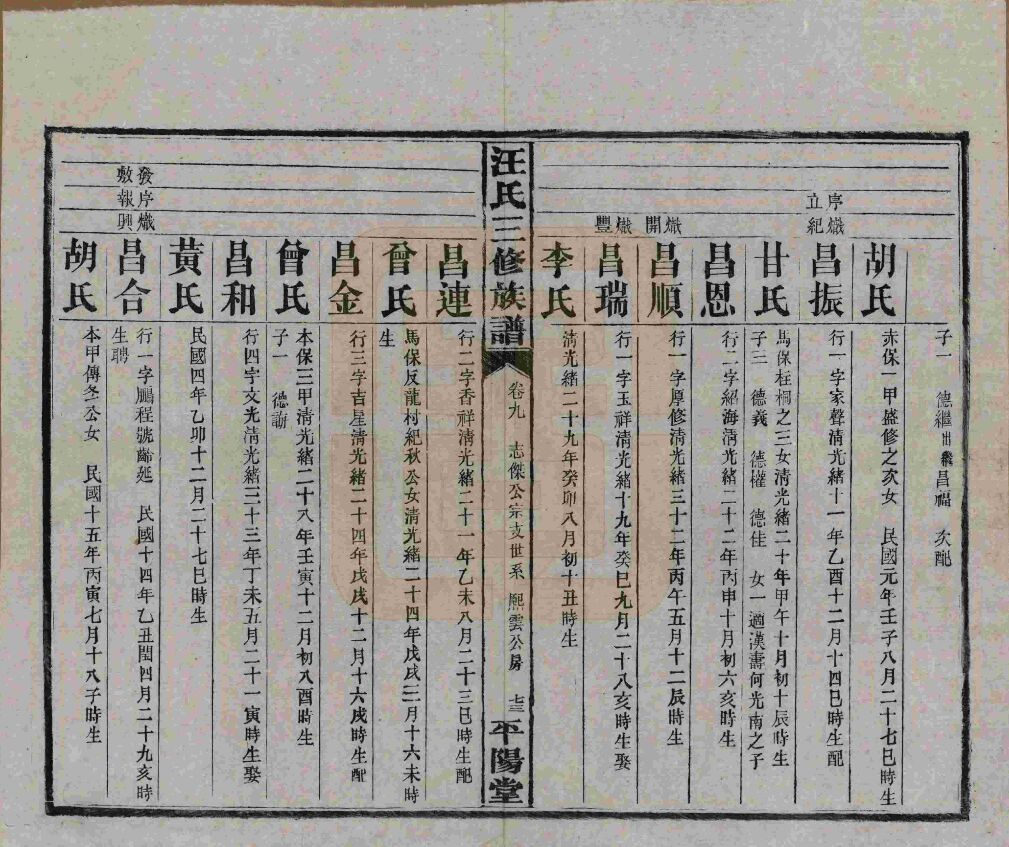 子一 德繼出繼昌福 次配
胡氏
赤保一甲盛修之次女 民國元年壬子八月二十七巳時生
序熾
立紀
昌振
行一字家聲清光緒十一年乙酉十二月十四巳時生配
甘氏
馬保柱桐之三女清光緒二十年甲午十月初十辰時生
子三 德義 德權 德佳 女一適漢壽何光南之子
昌恩
行二字紹海清光緒二十二年丙申十月初六亥時生
熾
開
昌順
行一字厚修清光緒三十二年丙午五月十二辰時生
熾
豐
昌瑞
行一字玉祥清光緒十九年癸巳九月二十八亥時生娶
李氏
清光緒二十九年癸卯八月初十丑時生
汪氏三修族譜 卷九 志傑公宗支世系 熙雲公房 七三 平陽堂
昌連
行二字香祥清光緒二十一年乙未八月二十三巳時生配
曾氏
馬保反龍村紀秋公女清光緒二十四年戊戌三月十六未時
生
昌金
行三字吉星清光緒二十四年戊戌十二月十六戌時生配
曾氏
本保三甲清光緒二十八年壬寅十二月初八酉時生
子一 德謝
昌和
行四字文光清光緒三十三年丁未五月二十一寅時生娶
黃氏
民國四年乙卯十二月二十七巳時生
發序熾
敷報興
昌合
行一字鵬程號齡延 民國十四年乙丑閏四月二十九亥時
生聘
胡氏
本甲傳冬公女 民國十五年丙寅七月十八子時生